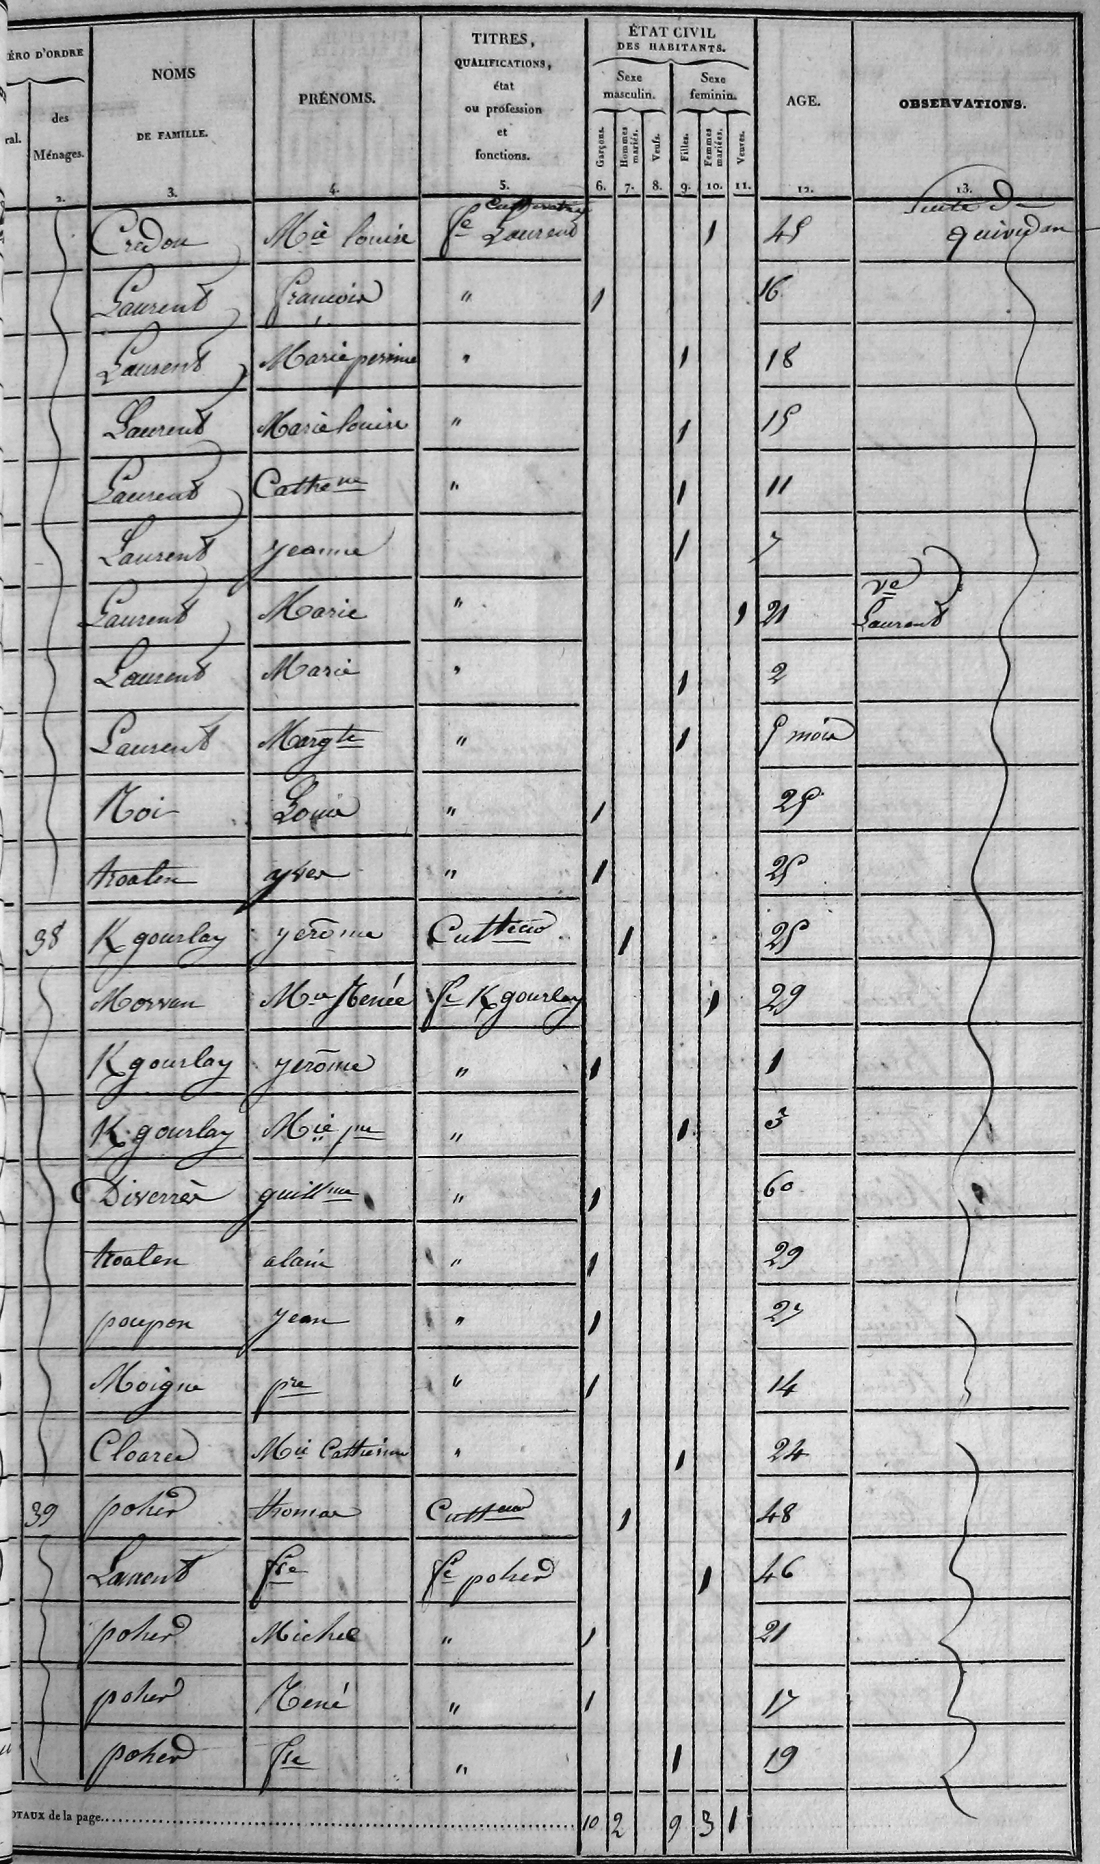 ÉRO D'ORDRE
ral.
des
Ménages.
2.
NOMS
DE FAMILLE.
3.
PRÉNOMS.
4.
TITRES,
QUALIFICATIONS,
état
ou profession
et
fonctions.
5.
ÉTAT CIVIL
DES HABITANTS.
Sexe
masculin.
Sexe
feminin.
Garçons.
Hommes mariés.
Veufs.
Filles.
Femmes mariées.
Veuves.
6. 7. 8. 9. 10. 11.
AGE.
12.
OBSERVATIONS.
13.
Suite de
Quividan
Credou Mie louise fe Laurent 1 45
Laurent francois " 1 16
Laurent Marie perinne " 1 18
Laurent Marie louise " 1 15
Laurent Cathene " 1 11
Laurent yeanne 1 7
Laurent Marie " 1 21 ve Laurent
Laurent Marie " 1 2
Laurent Margte " 1 5 mois
Noi Louis " 1 25
troaten yves " 1 25
38 K gourlay yerôme Cultteur 1 25
Morvan Mie Renée fe K gourlay 1 29
K gourlay yerôme " 1 1
K gourlay Mie pne " 1 3
Diverrès guillme " 1 60
troaten alain " 1 29
poupon yean " 1 27
Moigne pre " 1 14
Cloarec Mie Catherine " 1 24
39 poher thomas Cultteur 1 48
Laurent fse fe poher 1 46
poher Michel " 1 21
poher René " 1 17
poher fse " 1 19
OTAUX de la page 10 2 9 3 1